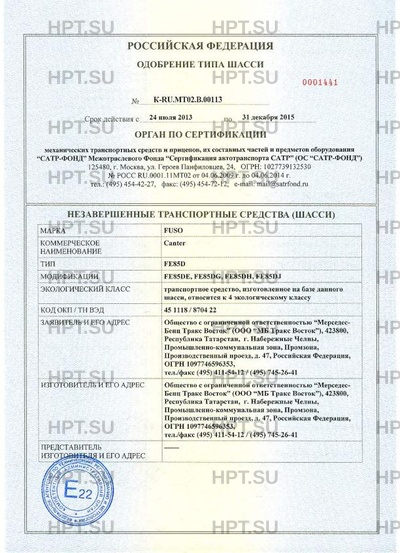 РОССИЙСКАЯ ФЕДЕРАЦИЯ
ОДОБРЕНИЕ ТИПА ШАССИ
0001441
№ K-RU.MT02.B.00113
Срок действия с 24 июля 2013 по 31 декабря 2015
ОРГАН ПО СЕРТИФИКАЦИИ
механических транспортных средств и прицепов, их составных частей и предметов оборудования
"САТР-ФОНД" Межотраслевого Фонда "Сертификация автотранспорта САТР" (ОС "САТР-ФОНД")
125480, г. Москва, ул. Героев Панфиловцев, 24, ОГРН: 1027739132530
№ РОСС RU.0001.11МТ02 от 04.06.2009 г. до 04.06.2014 г.
тел.: (495) 454-42-27, факс: (495) 454-72-12, e-mail: mail@satrfond.ru
НЕЗАВЕРШЕННЫЕ ТРАНСПОРТНЫЕ СРЕДСТВА (ШАССИ)
МАРКА FUSO
КОММЕРЧЕСКОЕ Canter
НАИМЕНОВАНИЕ
ТИП FE85D
МОДИФИКАЦИИ FE85DE, FE85DG, FE85DH, FE85DJ
ЭКОЛОГИЧЕСКИЙ КЛАСС транспортное средство, изготовленное на базе данного
шасси, относится к 4 экологическому классу
КОД ОКП / ТН ВЭД 45 1118 / 8704 22
ЗАЯВИТЕЛЬ И ЕГО АДРЕС Общество с ограниченной ответственностью "Мерседес-
Бенц Тракс Восток" (ООО "МБ Тракс Восток"), 423800,
Республика Татарстан, г. Набережные Челны,
Промышленно-коммунальная зона, Промзона,
Производственный проезд, д. 47, Российская Федерация,
ОГРН 1097746596353,
тел./факс (495) 411-54-12 / (495) 745-26-41
ИЗГОТОВИТЕЛЬ И ЕГО АДРЕС Общество с ограниченной ответственностью "Мерседес-
Бенц Тракс Восток" (ООО "МБ Тракс Восток"), 423800,
Республика Татарстан, г. Набережные Челны,
Промышленно-коммунальная зона, Промзона,
Производственный проезд, д. 47, Российская Федерация,
ОГРН 1097746596353,
тел./факс (495) 411-54-12 / (495) 745-26-41
ПРЕДСТАВИТЕЛЬ
ИЗГОТОВИТЕЛЯ И ЕГО АДРЕС
E22
HPT.SU